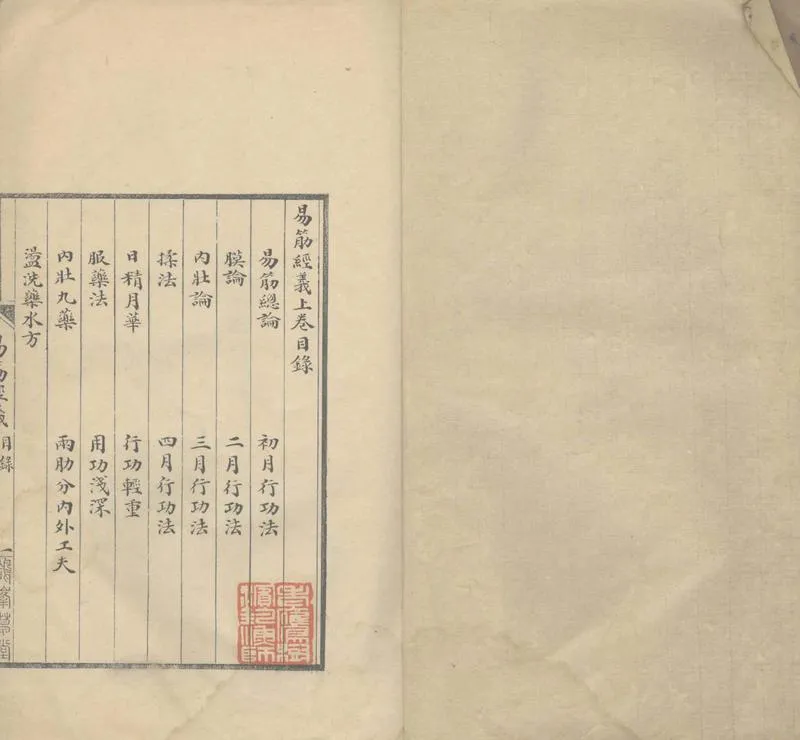 易筋經義上卷目錄
易筋總論 初月行功法
膜論 二月行功法
內壯論 三月行功法
揉法 四月行功法
日精月華 行功輕重
服藥法 用功淺深
內壯丸藥 兩肋分內外工夫
盪洗藥水方
易筋經義 目錄 一